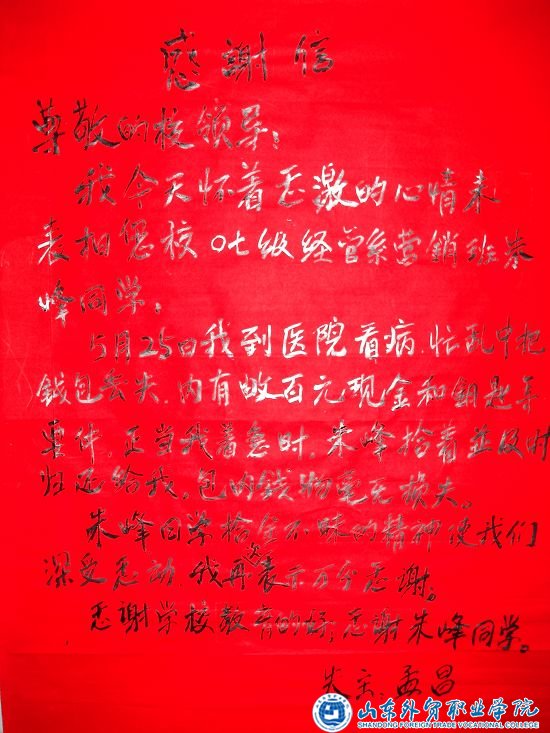 感謝信
尊敬的校领导：
我今天怀着感激的心情来
表扬您校07级经管系营銷班朱
峰同学。
5月25日我到医院看病，忙乱中把
钱包丢失，内有数百元现金和鈅匙等
要件，正当我着急时，朱峰拾着並及时
归还给我，包内钱物毫无损失。
朱峰同学拾金不昧的精神使我们
深受感动，我再次表示万分感谢。
感謝学校教育的好，感谢朱峰同学。
失主：孟昌
山东外贸职业学院
SHANDONG FOREIGN TRADE VOCATIONAL COLLEGE